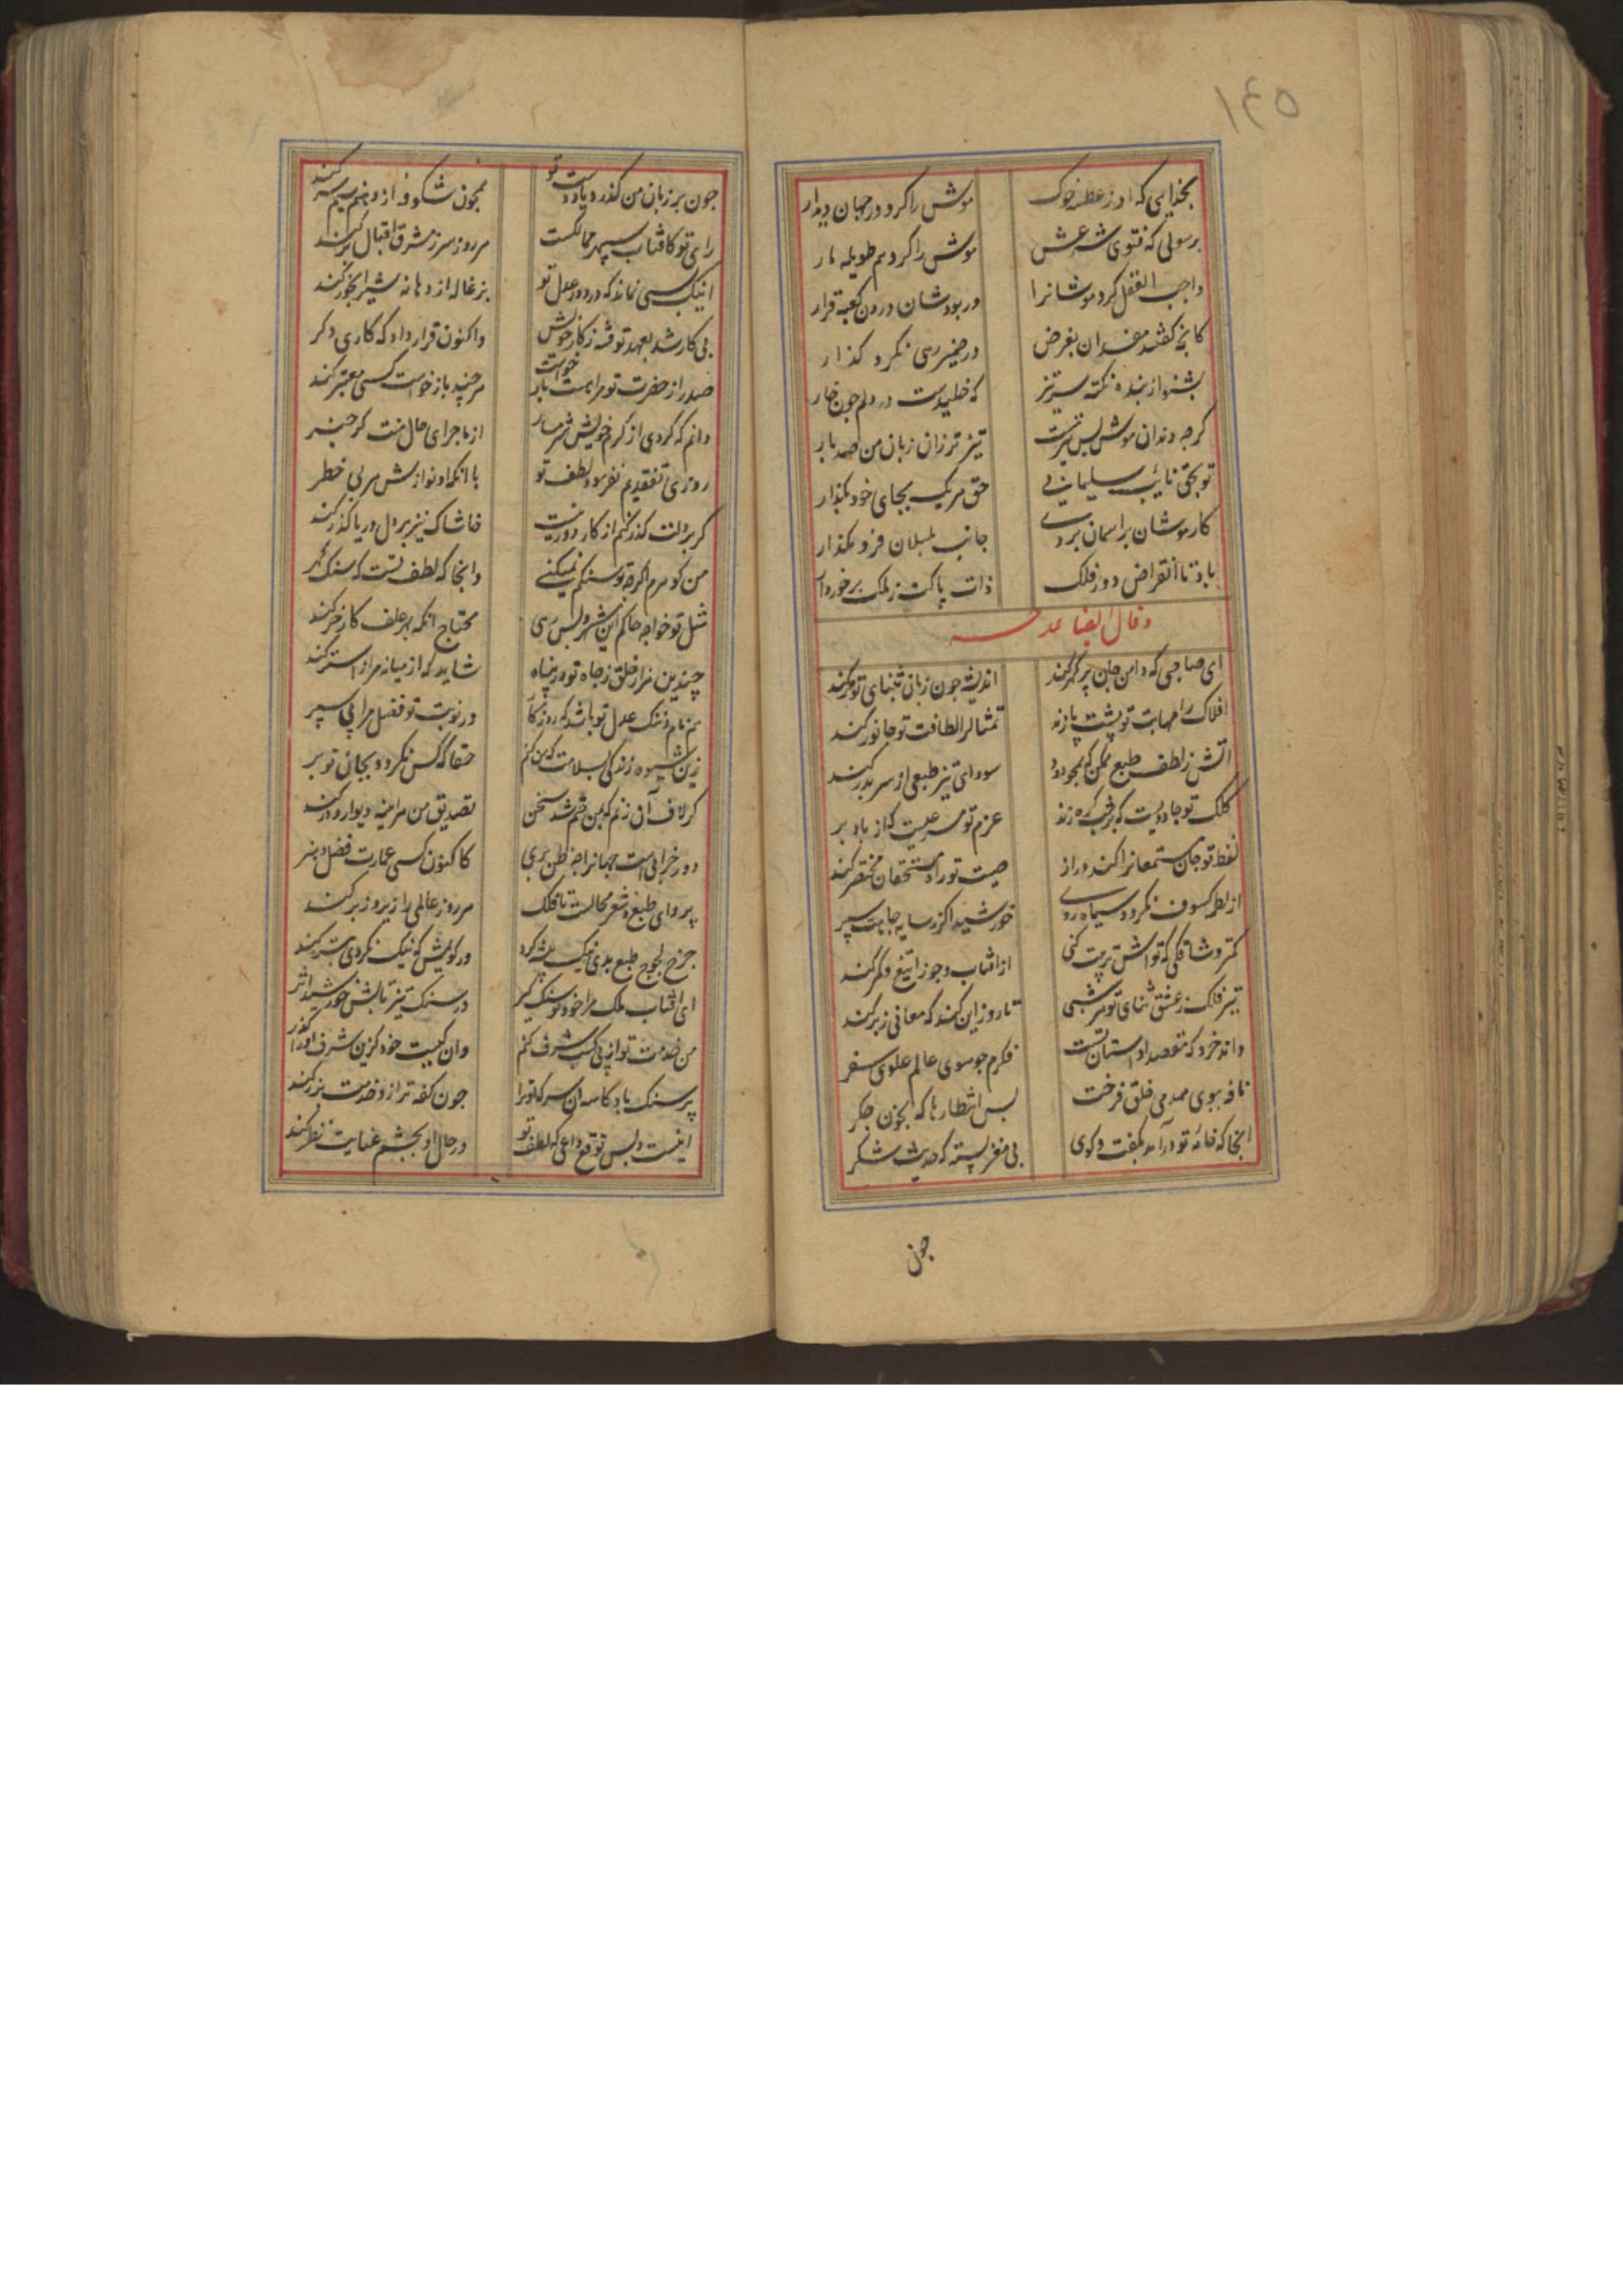 ۱۴۵
بخدایی که او ز عطسه خوک
موش را کرد در جهان دیدار
برسولی که فتوی شرعش
موش را کرد هم طویله مار
واجب القتل کرد موشانرا
ور بود شان درون کعبه قرار
کانچه گفتند مفسدان بغرض
در ضمیر رهی نکرد گذار
بشنو از بنده نکته سرتیز
که خلیدست در دلم چون خار
کرچه دندان موش بس تیزست
تیزتر زان زبان من صد بار
تو بحق نایب سلیمانی
حق هر یک بجای خود بگذار
کار موشان بر آسمان بردی
جانب بلبلان فرو مگذار
باد تا انقراض دور فلک
ذات پاکت ز ملک برخوردار
وقال ایضا یمدحه
ای صاحبی که دامن جان پر گهر کند
اندیشه چون زبان بثنای تو تر کند
افلاک را مهابت تو پشت پا زند
تمثال را لطافت تو جانور کند
آتش ز لطف طبع ممکن که همچو دود
سودای تیز طبعی از سر بدر کند
کلک تو جادویست که بر ره زند
عزم تو مسرعیست که از باد بر
لفظ تو جان مستمعانرا کند دراز
صیت تو راه مستحقان مختصر کند
از لطمه کسوف نکردد سیاه روی
خورشید اگر ز سایه جاهت سپر
کمتر وشاقکی که تو اش تربیت کنی
از آفتاب و جوزا تیغ و کمر کند
تیر فلک ز عشق ثنای تو هر شبی
تا روز این کند که معانی ز بر کند
داند خرد که مقصد او آستان تست
فکرم چو سوی عالم علوی سفر
نافه ببوی همدمی خلق فرخت
بس انتظارها که بخون جگر
آنجا که خامه تو درآمد بگفت و کوی
بی مغز پسته که حدیث شکر
چون
چون بر زبان من گذرد یاد دست تو
همچون شکوفه از دهنم سیم سر کند
رای تو کافتاب سپهر ممالکست
هر روز سر ز مشرق اقبال بر کند
اینک کسی نماند که در دور عدل تو
بزغاله از دهانه شیر آبخور کند
بی کار شد بعهد تو فتنه ز کار خویش
واکنون قرار داد که کاری دگر
صدرا ز حضرت تو مرا هست باز خواست
هر چند باز خواست کسی معتبر کند
دانم که کردی از کرم خویش شرمسار
از ماجرای حال منت گر خبر
روزی تفقدیم نفرمود لطف تو
با آنکه او نوازش هر بی خطر
گر بر دلت گذر کنم از کار دور نیست
خاشاک نیز بر دل دریا گذر کند
من کوهرم اگرچه تو سنگم نمیکنی
وآنجا که لطف تست که سنگ گهر
مثل تو خواجه حاکم این شهر و بس رهی
محتاج آنکه بهر علف کار خر کند
چندین هزار خلق ز جاه تو در پناه
شاید که از میانه مرا استر کند
هم نام و ننگ عدل تو باشد که روزگار
در نوبت تو فضل مرا پی سپر
زین شیوه زندگی بسلامت که من کنم
حقا که کس نکرد و بجان تو بر
گر لاف آن زنم که بمن ختم شد سخن
تصدیق من هر آینه دیوار و در کند
دور خرابی است جهانرا چه ظن بری
کاکنون کسی عمارت فضل و هنر
پروای طبع و شعر محالست تا فلک
هر روز عالمی را زیر و زبر کند
چرخ لجوج طبع بدی نیک پیشه کرد
ور گوئیش که نیک نکردی بتر کند
ای آفتاب ملک مرا خود تو سنگ گیر
در سنگ نیز تابش خورشید اثر
من خدمت تو از پی کسب شرف کنم
وان کیست خود کزین شرف او را گذر
پر سنگ باد کاسه آن سر که او ترا
چون کفه ترازو خدمت بزر کند
اینست و بس توقع داعی که لطف تو
در حال او بچشم عنایت نظر کند